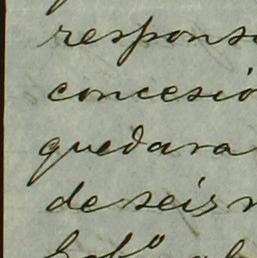 respons
concesió
quedara
de seis